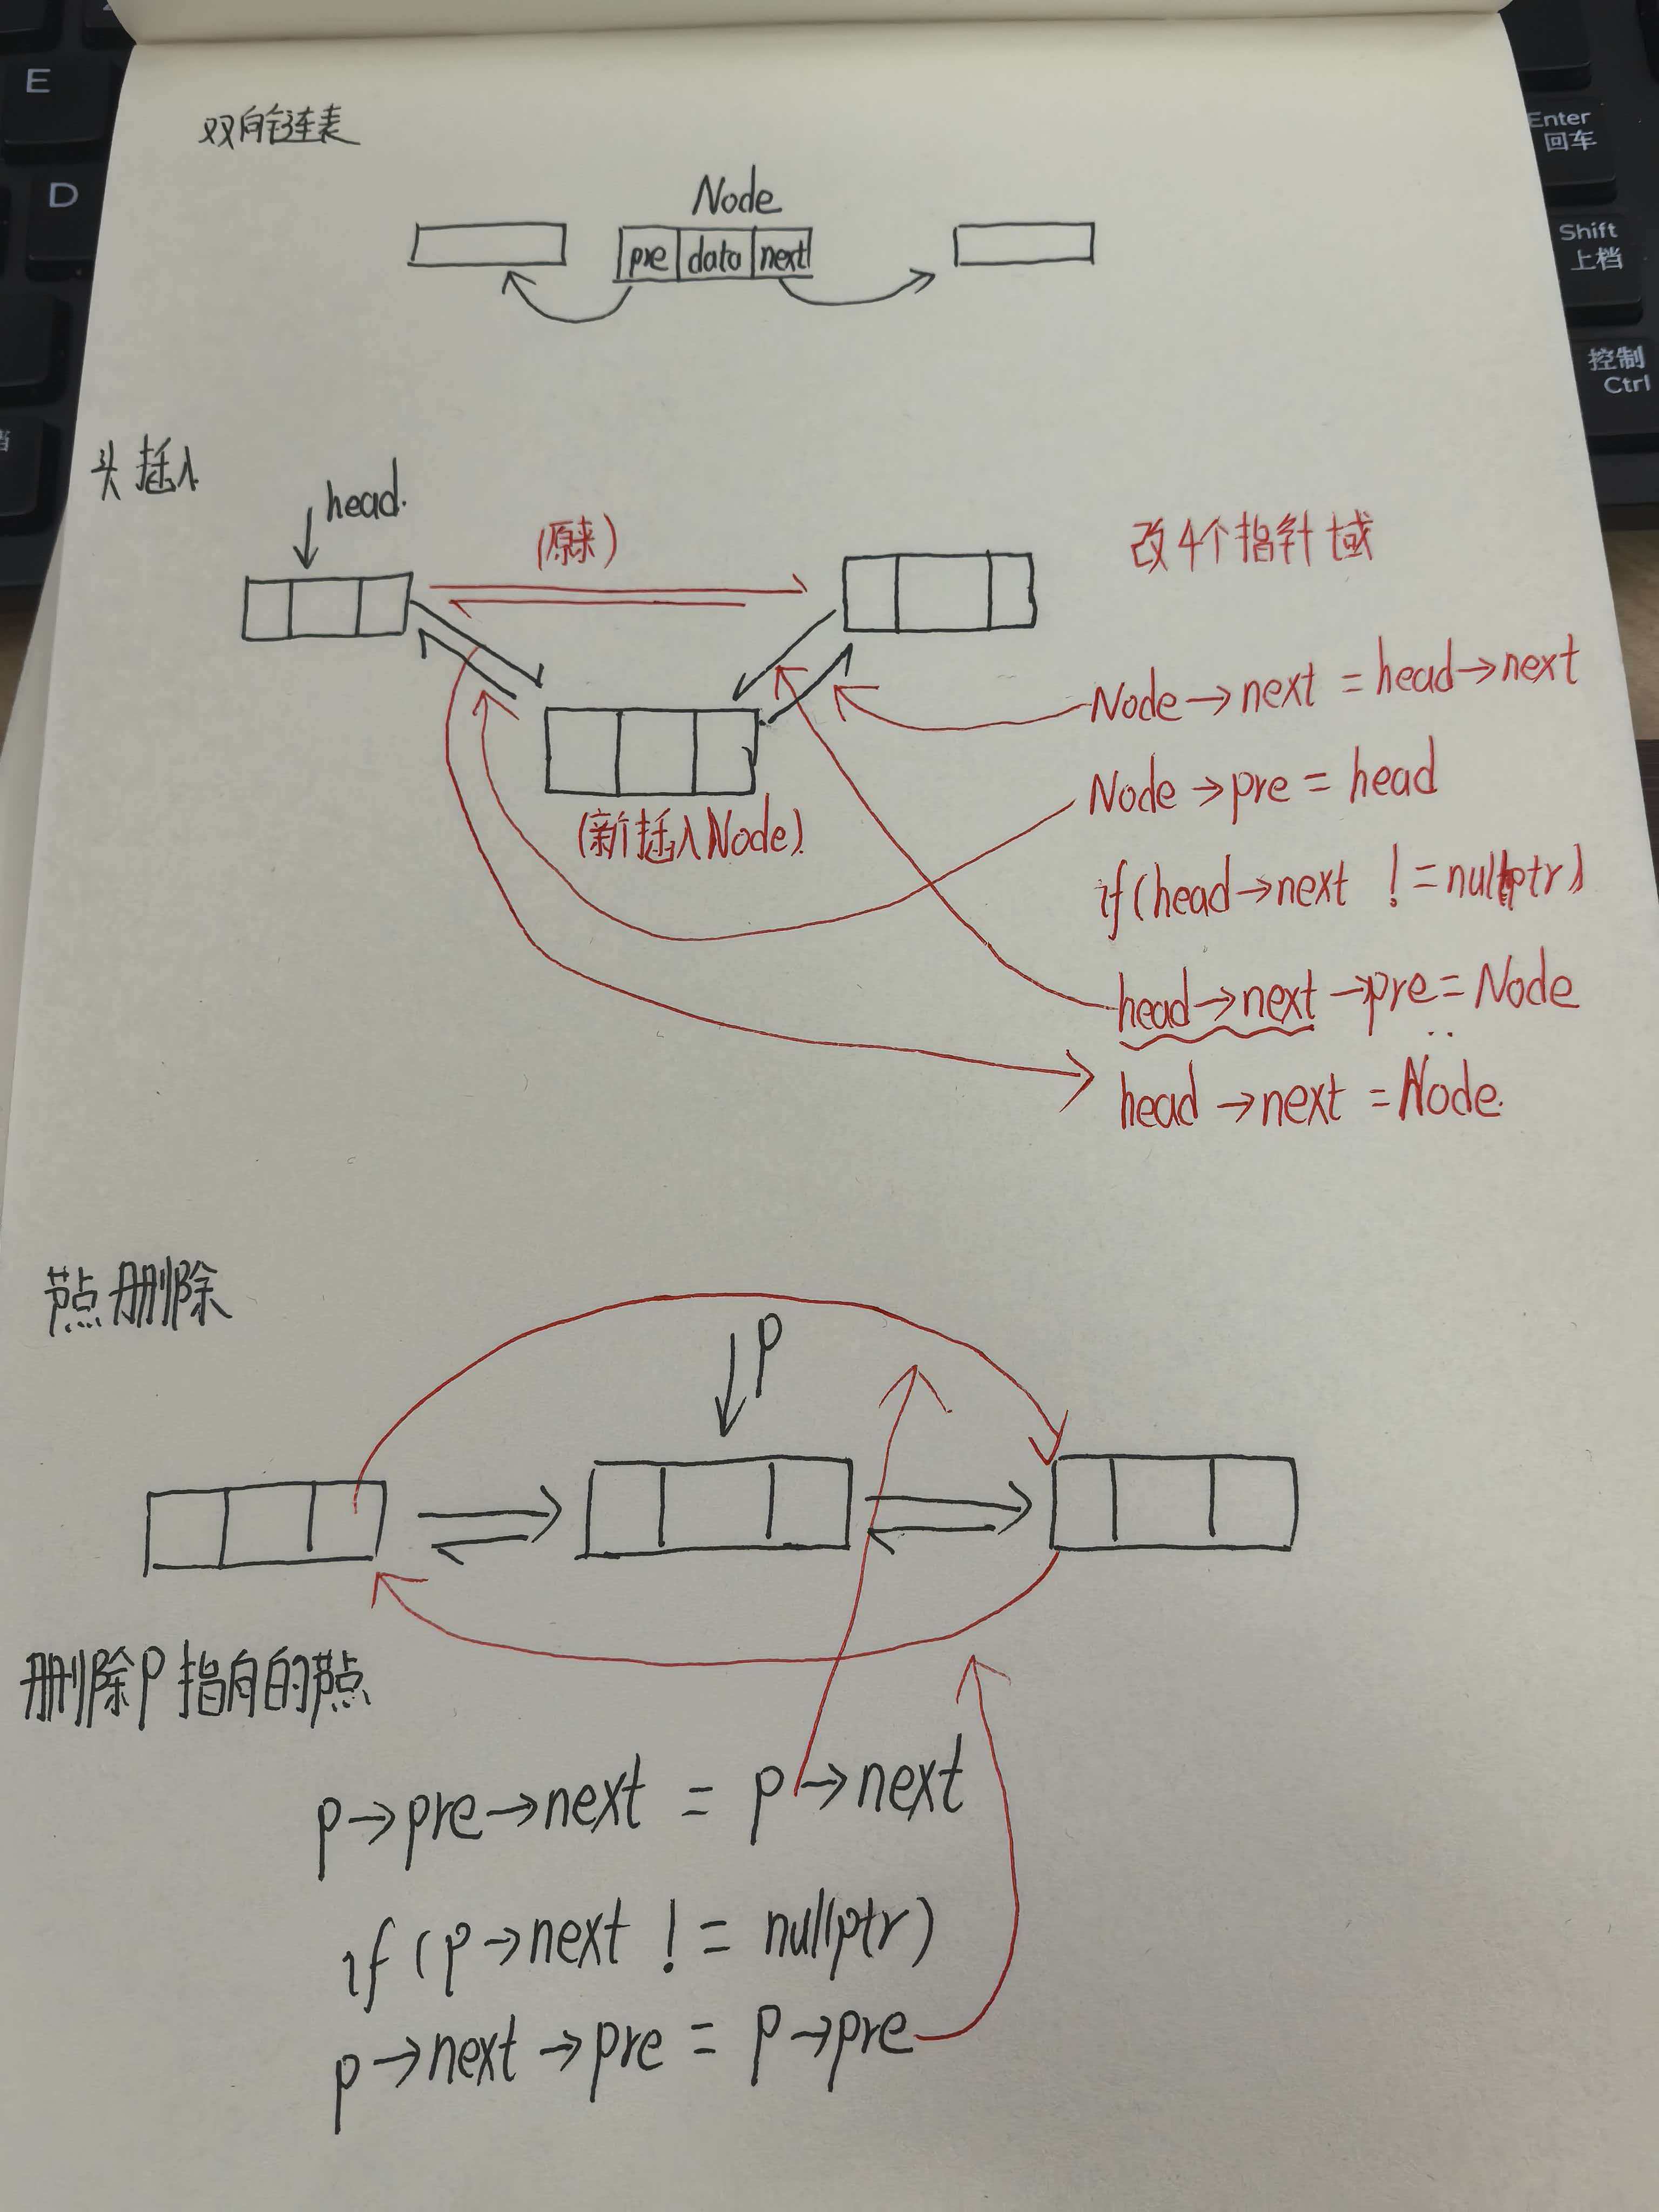 E
D
Enter
回车
Shift
上档
控制
Ctrl
双向链表
Node
pre data next
头插入
head.
(原来)
改4个指针域
Node→next = head→next
Node→pre = head
(新插入Node)
if(head→next != nullptr)
head→next→pre = Node
head→next = Node.
节点删除
P
删除P指向的节点
p→pre→next = p→next
if (p→next != nullptr)
p→next→pre = p→pre